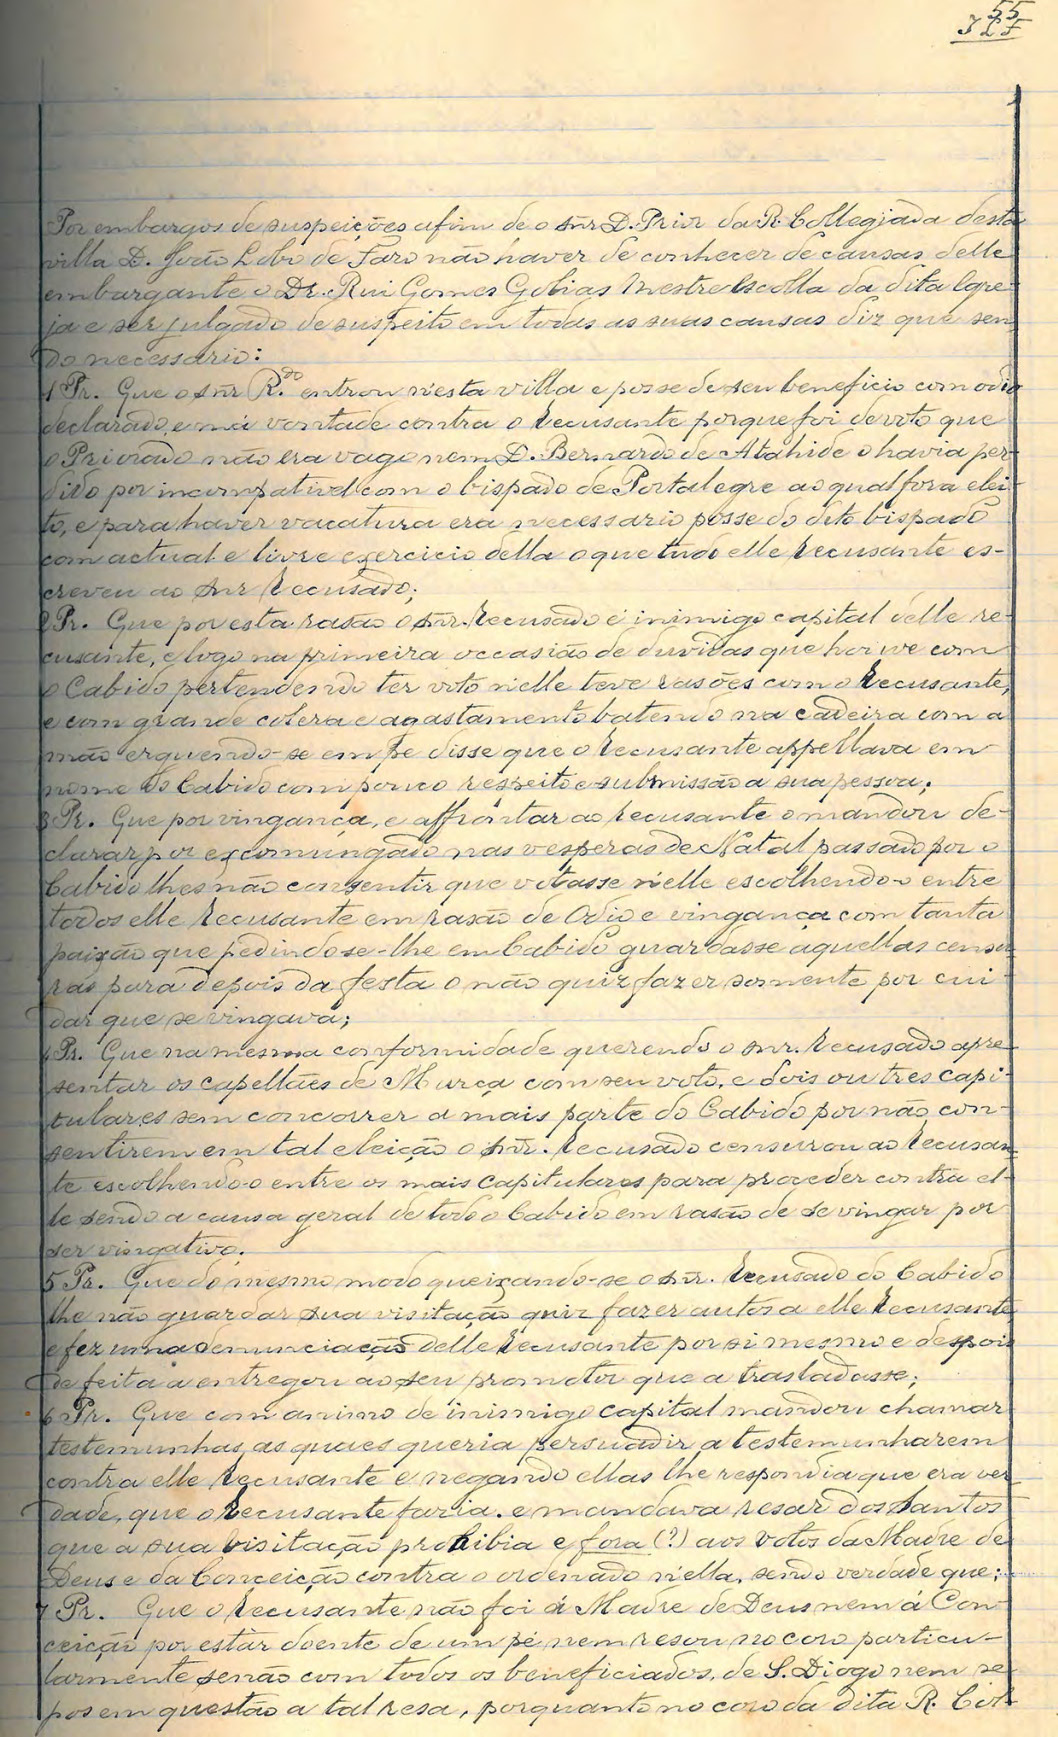 55
Por embargos de suspeições afim de o snr D. Prior da R. Collegiada desta
villa D. João Lobo de Faro não haver de conhecer de causas delle
embargante o Dr. Rui Gomes Golias Mestre Escolla da dita Egre-
ja e ser julgado de suspeito em todas as suas causas diz que sen-
do necessario:
1 Pr. Que o snr R.do entrou n'esta villa e posse de seu beneficio com odio
declarado, e má vontade contra o recusante porque foi de voto que
o Priorado não era vago nem D. Bernardo de Atahide o havia per-
dido por incompativel com o bispado de Portalegre ao qual fora elei-
to, e para haver vacatura era necessario posse do dito bispado
com actual e livre exercicio della o que tudo elle recusante es-
creveu ao snr Recusado;
2 Pr. Que por esta rasão o snr. Recusado é inimigo capital delle re-
cusante, e logo na primeira occasião de duvidas que houve com
o Cabido pertendendo ter voto n'elle teve rasões com o Recusante,
e com grande colera e agastamento batendo na cadeira com a
mão erguendo-se em pé disse que o Recusante appellava em
nome do Cabido com pouco respeito e submissão a sua pessoa;
3 Pr. Que por vingança, e affrontar ao recusante o mandou de-
clarar por excomungado nas vesperas de Natal passado por o
Cabido lhes não consentir que votasse n'elle escolhendo-o entre
todos elle Recusante em rasão de Odio e vingança com tanta
paixão que pedindo-se-lhe em Cabido guardasse aquellas censu-
ras para depois da festa o não quiz fazer somente por cui-
dar que se vingava;
4 Pr. Que na mesma conformidade querendo o snr. Recusado apre-
sentar os capellães de Murça com seu voto, e dois ou tres capi-
tulares sem concorrer a mais parte do Cabido por não con-
sentirem em tal eleição o snr. Recusado censurou ao Recusan-
te escolhendo-o entre os mais capitulares para proceder contra el-
le sendo a causa geral de todo o Cabido em rasão de se vingar por
ser vingativo;
5 Pr. Que do mesmo modo queixando-se o snr. Recusado do Cabido
lhe não guardar sua visitação quiz fazer autos a elle Recusante
e fez uma denunciação delle Recusante por si mesmo e despois
de feita a entregou ao seu promotor que a trasladasse;
6 Pr. Que com animo de inimigo capital mandou chamar
testemunhas, as quaes queria persuadir a testemunharem
contra elle Recusante e negando ellas lhe respondia que era ver-
dade, que o Recusante faria, e mandava resar dos Santos
que a sua visitação prohibia e fora (?) aos votos da Madre de
Deus e da Conceição contra o ordenado n'ella, sendo verdade que;
7 Pr. Que o Recusante não foi á Madre de Deus nem á Con-
ceição por estar doente de um pé nem resou no coro particu-
larmente senão com todos os beneficiados, de S. Diogo nem se
pos em questão a tal resa, porquanto no coro da dita R. Col-